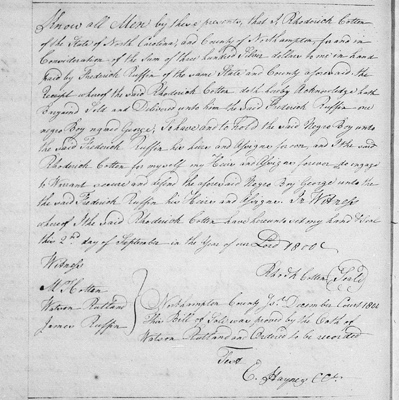 Know all Men by these presents, that I Rhoderick Cotten
of the State of North Carolina, and County of Northampton, for and in
Consideration of the Sum of three hundred Silver dollars to me in hand
paid by Frederick Ruffin of the same State and County aforesaid the
Receipt whereof the Said Rhoderick Cotten doth hereby Acknowledge hath
Bargaind Sold and Delivered unto him the Said Frederick Ruffin one
negro Boy named George; To have and to Hold the said Negro Boy unto
the said Frederick Ruffin his heirs and Assigns forever, and I the said
Rhoderick Cotten for myself my Heirs and Assigns forever do engage
to Warrant secure and defend the aforesaid Negro Boy George unto the
the said Frederick Ruffin his Heirs and Assigns. In Witness
whereof I the said Rhoderick Cotten have hereunto set my hand & Seal
this 2nd day of September in the Year of our Lord
Witness
Rhodk Cotten (Seal)
M Cotten
Watson Rutland
James Ruffin
Northampton County Sct. December Court
This Bill of Sale was proved by the Oath of
Watson Rutland and Ordered to be recorded
Test
E. Haynes CCk